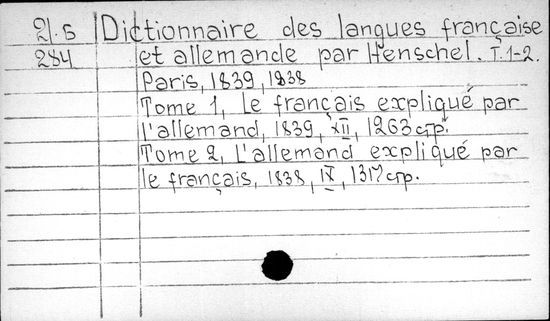 21.5 Dictionnaire des langues française
284 et allemande par Henschel. T. 1-2.
Paris, 1839, 1838
Tome 1, Le français expliqué par
l'allemand, 1839, XII, 1263 стр.
Tome 2, L'allemand expliqué par
le français, 1838, IV, 1317 стр.